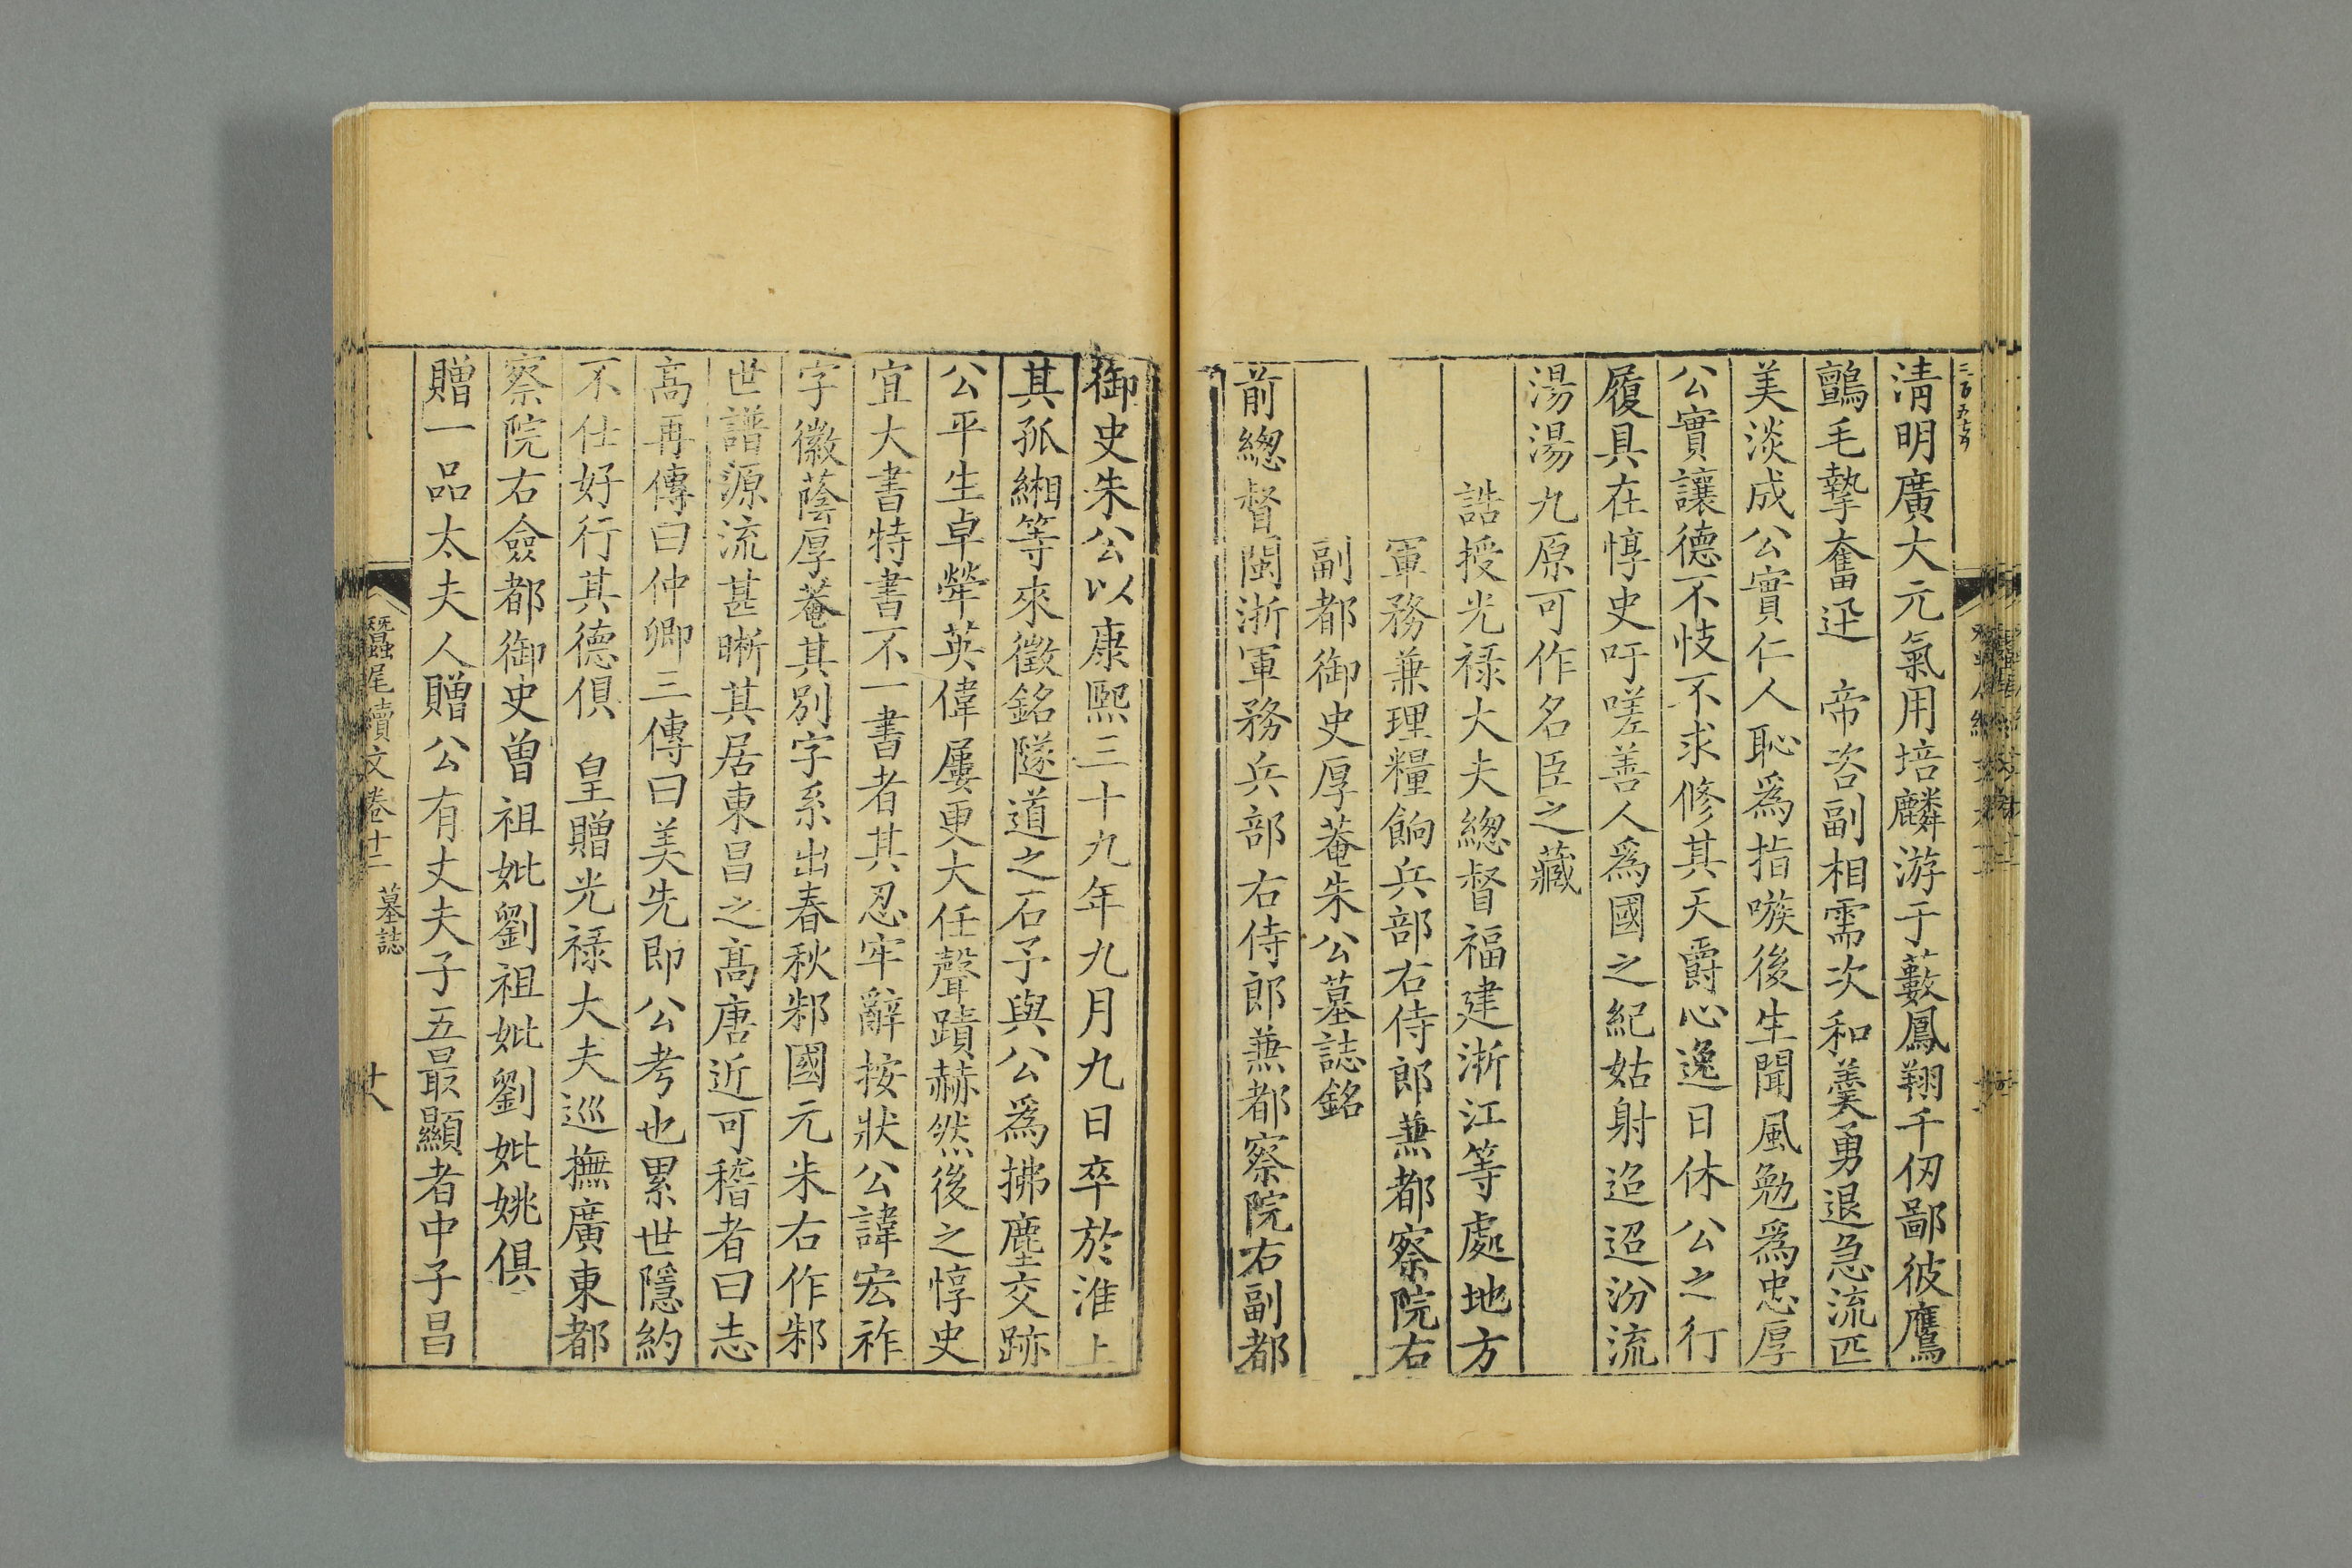 清明廣大元氣用培麟游于藪鳳翔千仞鄙彼鷹
鸇毛摯奮迅　帝咨副相需次和羹勇退急流匹
美淡成公實仁人恥爲指嗾後生聞風勉爲忠厚
公實讓德不忮不求修其天爵心逸日休公之行
履具在惇史吁嗟善人爲國之紀姑射迢迢汾流
湯湯九原可作名臣之藏
誥授光禄大夫總督福建浙江等處地方
軍務兼理糧餉兵部右侍郎兼都察院右
副都御史厚菴朱公墓誌銘
前總督閩浙軍務兵部右侍郎兼都察院右副都
御史朱公以康熙三十九年九月九日卒於淮上
其孤緗等來徵銘隧道之石予與公爲拂塵交跡
公平生卓犖英偉屢更大任聲蹟赫然後之惇史
宜大書特書不一書者其忍牢辭按狀公諱宏祚
字徽蔭厚菴其別字系出春秋邾國元朱右作邾
世譜源流甚晰其居東昌之高唐近可稽者曰志
高再傳曰仲卿三傳曰美先即公考也累世隱約
不仕好行其德俱　皇贈光禄大夫巡撫廣東都
察院右僉都御史曾祖妣劉祖妣劉妣姚俱
贈一品太夫人贈公有丈夫子五最顯者中子昌
蠶尾續文卷十二　墓誌　廿八